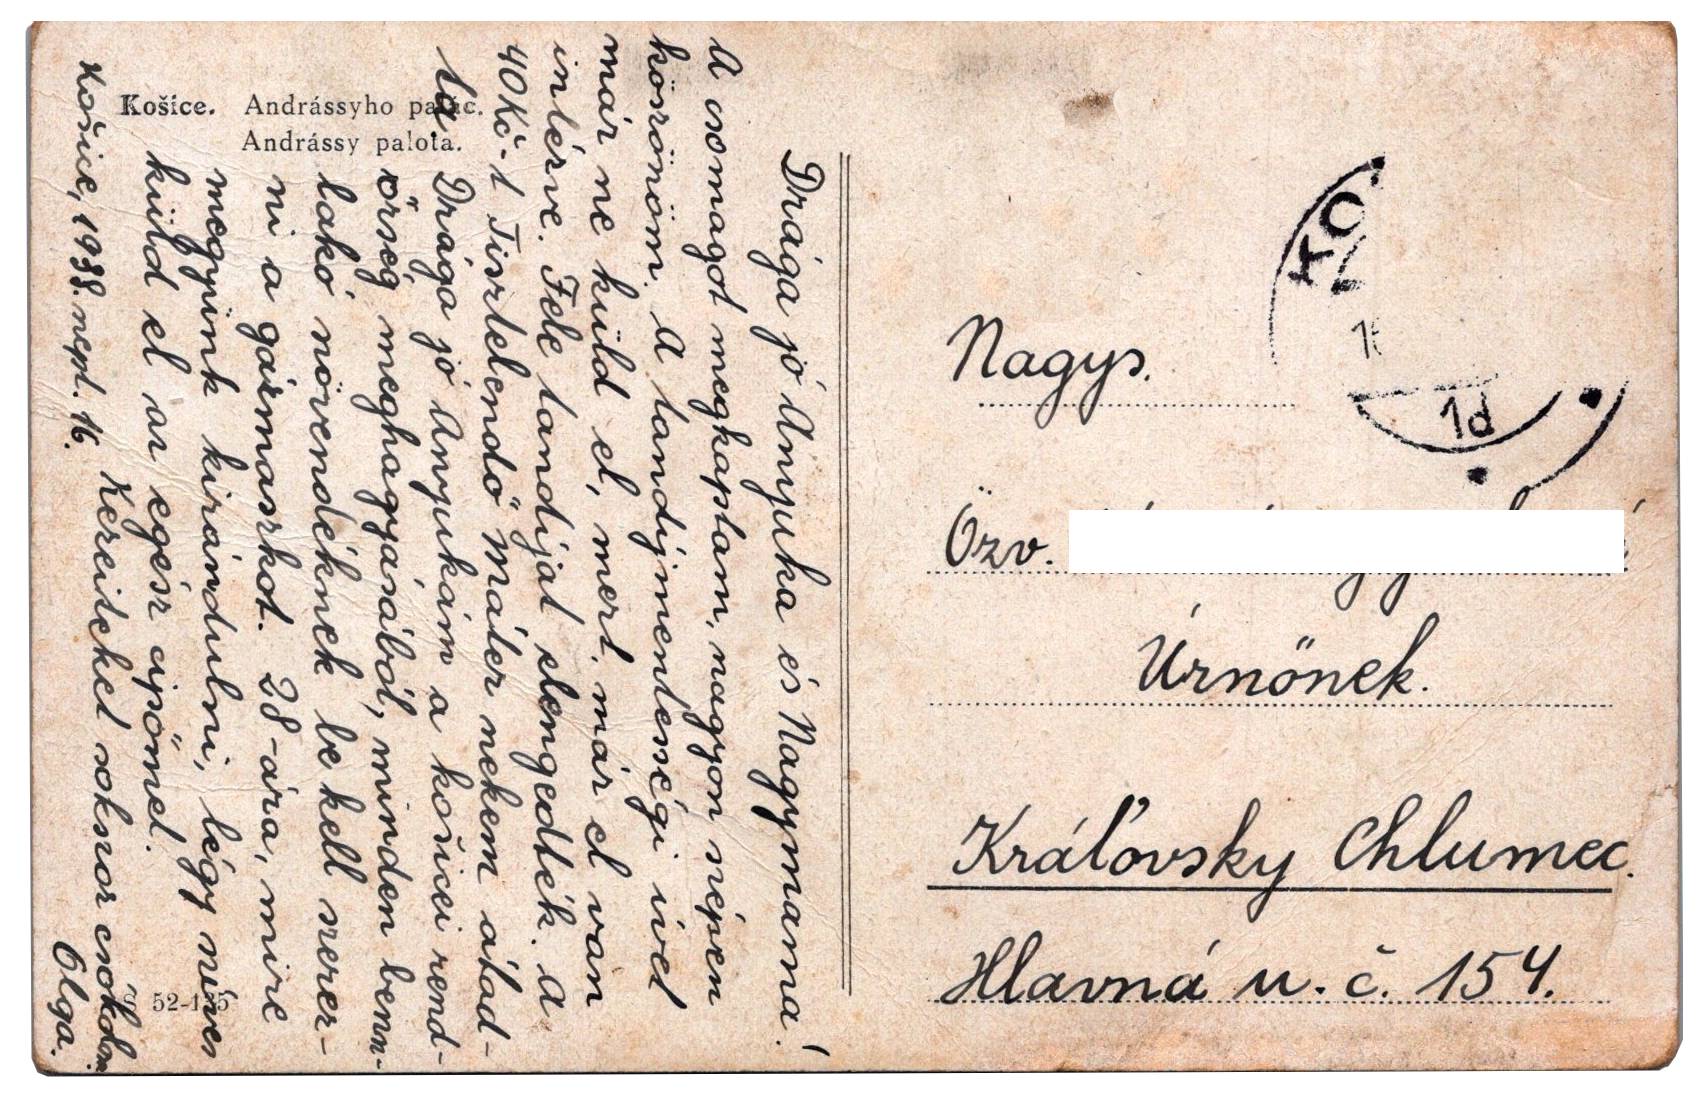 Košice. Andrássyho palác.
Andrássy palota.
Drága jó Anyuka és Nagymama!
A csomagot megkaptam, nagyon szépen
köszönöm. A tandíjmentességi ívet
már ne küld el, mert már el van
intézve. Fele tandíjat elengedték. A
40Kč-t Tisztelendő Máter nekem átad-
ta Drága jó Anyukám a košicei rend-
őrség meghagyásából, minden benn-
lakó növendéknek be kell szerez-
ni a gázmaszkot. 28-ára, mire
megyünk kirándulni, légy szíves
küld el az egész cipőmet.
Košice, 1938. szept. 16. Kezeiteket sokszor csókolom
Olga.
52-135
Nagys.
Özv.
Úrnőnek.
Kráľovsky Chlumec.
Hlavná u. č. 154.
KO
1d